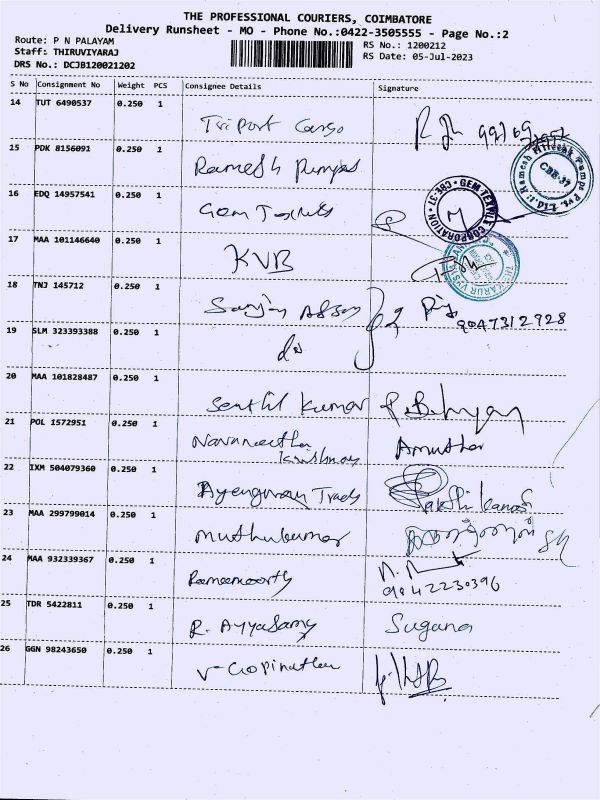 THE PROFESSIONAL COURIERS, COIMBATORE
Delivery Runsheet - MO - Phone No.:0422-3505555 - Page No.:2
Route: P N PALAYAM
RS No.: 1200212
Staff: THIRUVIYARAJ
RS Date: 05-Jul-2023
DRS No.: DCJB120021202
S No Consignment No Weight PCS Consignee Details Signature
14 TUT 6490537 0.250 1
Triport Cargo
15 PDK 8156091 0.250 1
Ramesh Pumps
16 EDQ 14957541 0.250 1
Gem Textiles
GEM TEXTILE CORPORATION
CBE-37
17 MAA 101146640 0.250 1
KVB
18 TNJ 145712 0.250 1
9047312928
19 SLM 323393388 0.250 1
do
20 MAA 101828487 0.250 1
Senthil Kumar
21 POL 1572951 0.250 1
Navaneetha
Krishnan
Amutha
22 IXM 504079360 0.250 1
23 MAA 299799014 0.250 1
Muthukumar
24 MAA 932339367 0.250 1
Ramamoorthy
9042230396
25 TDR 5422811 0.250 1
R. Ayyasamy Sugana
26 GGN 98243650 0.250 1
V Gopinathan